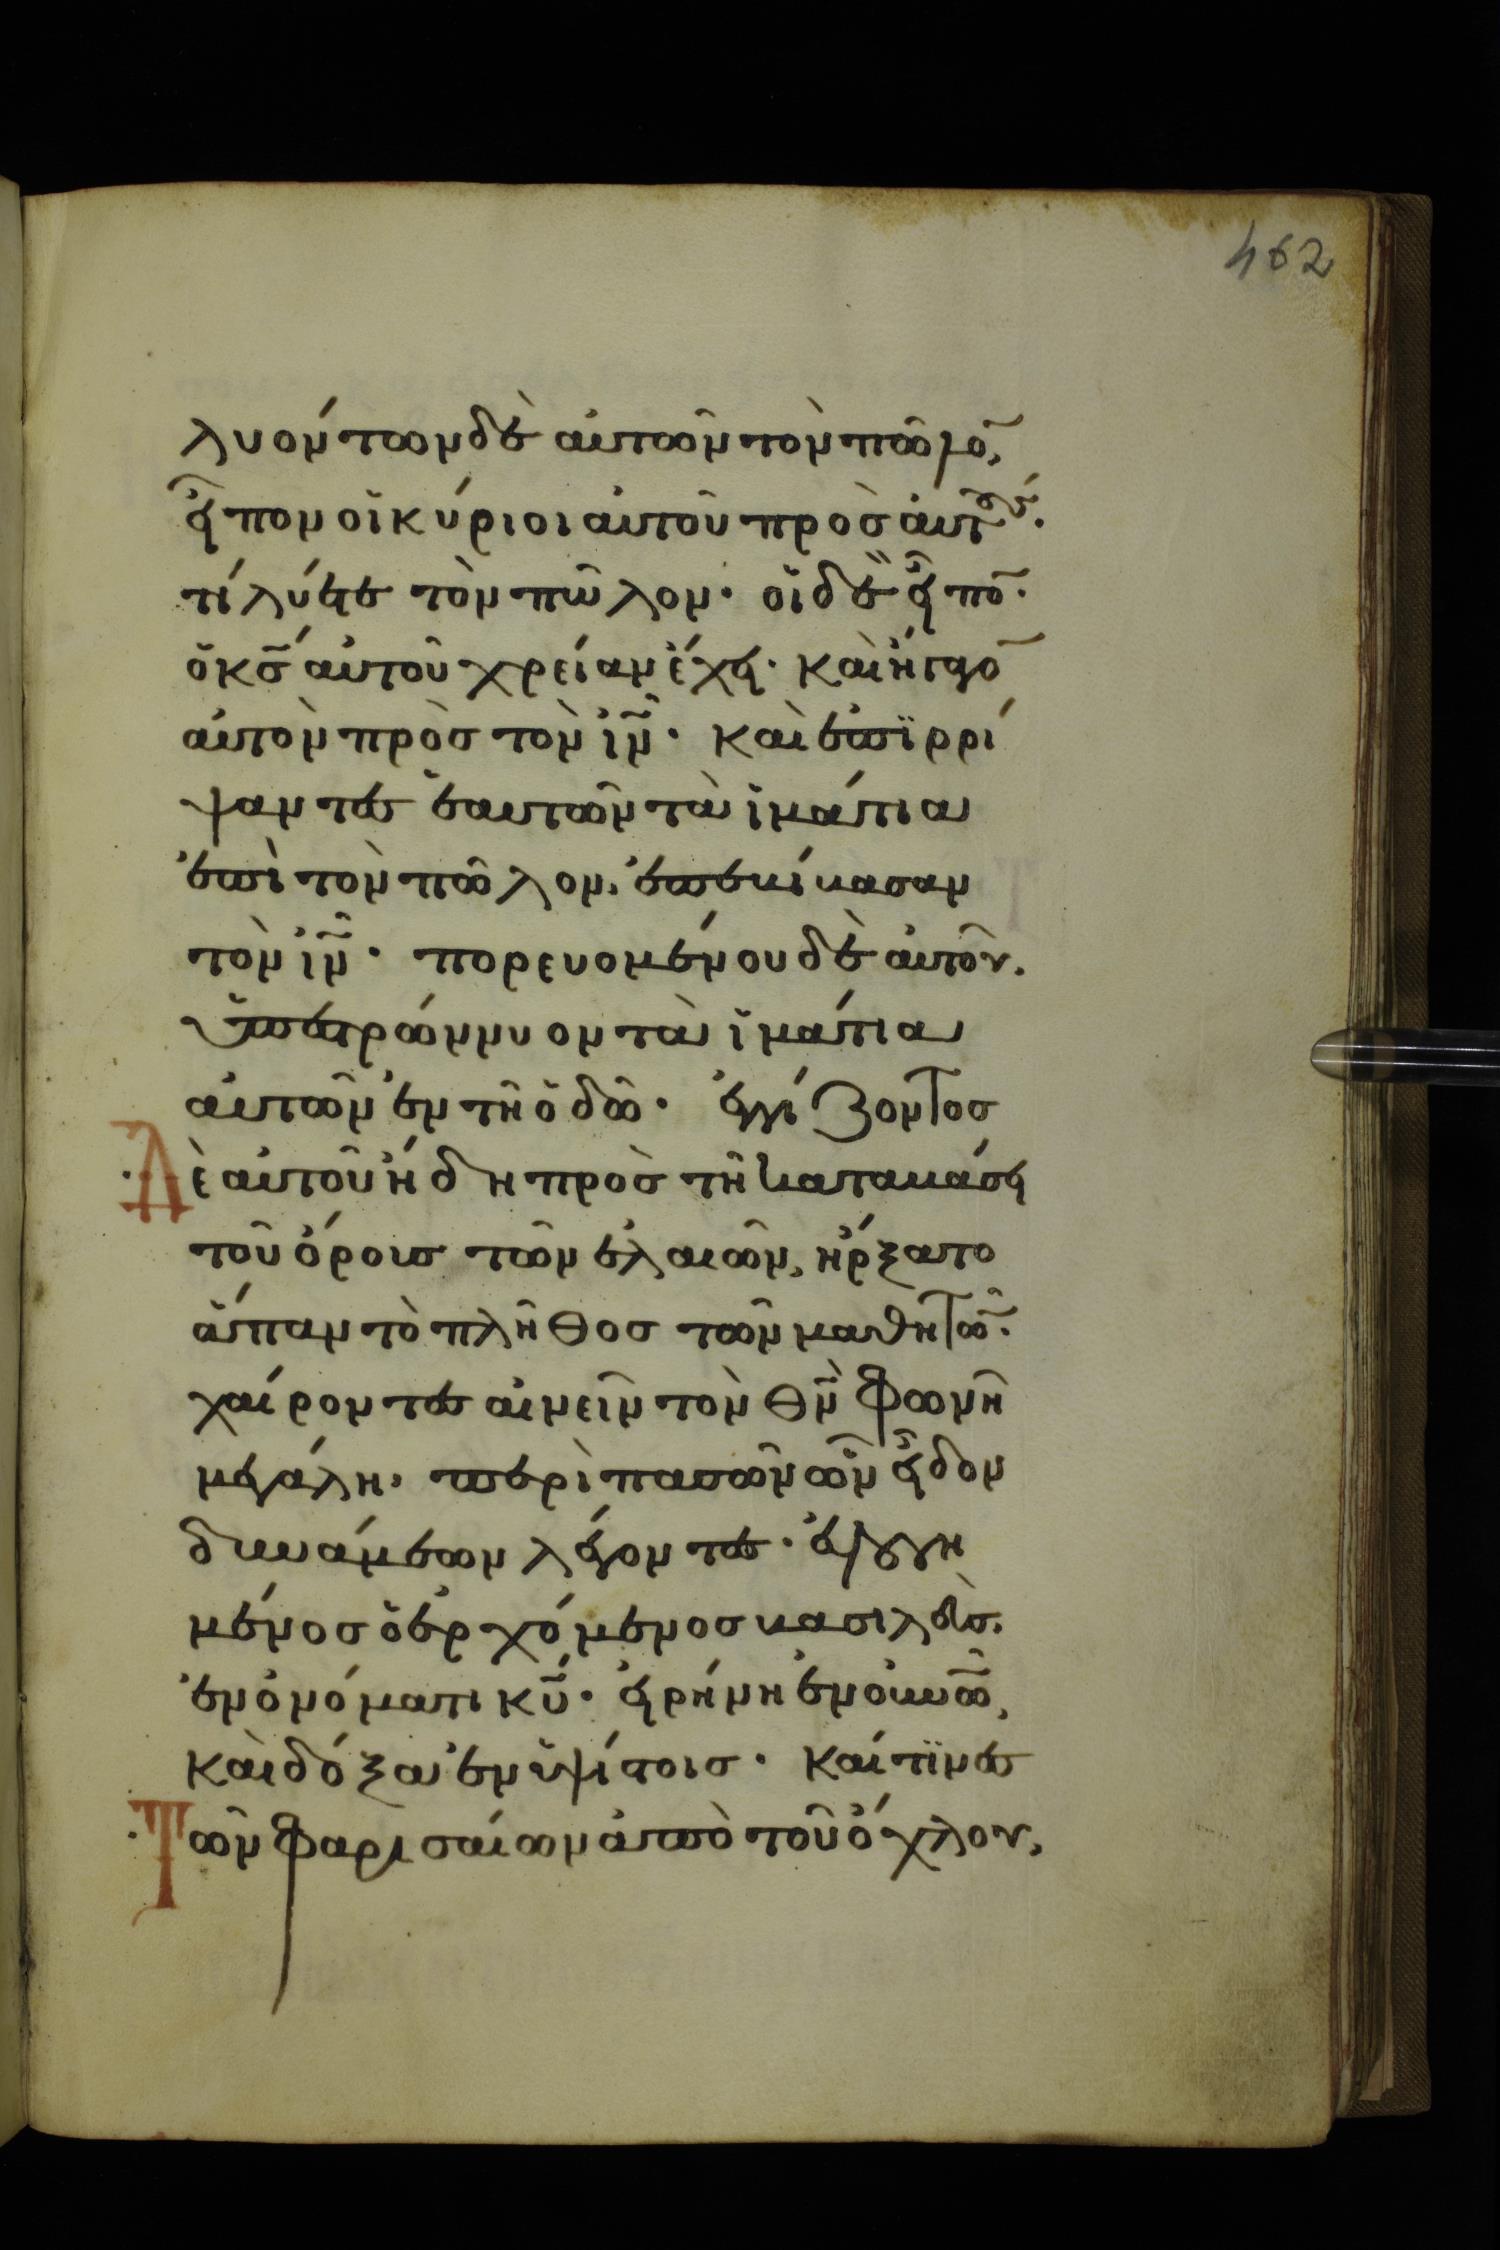 462
λυόντων δὲ αὐτῶν τὸν πῶλο̅,
εἶπον οἱ κύριοι αὐτοῦ πρὸς αὐτούς.
τί λύετε τὸν πῶλον· οἱ δὲ εἶπο̅·
ὁ κ̅ς̅ αὐτοῦ χρείαν ἔχει· καὶ ἤγαγο̅
αὐτὸν πρὸς τὸν ι̅ν̅· καὶ ἐπϊρρί
ψαντες ἑαυτῶν τὰ ἱμάτια
ἐπὶ τὸν πῶλον, ἐπεβίβασαν
τὸν ι̅ν̅· πορευομένου δὲ αὐτοῦ.
ὑπεστρώννυον τὰ ἱμάτια
αὐτῶν ἐν τῆ ὁδῶ· ἐγγίζοντος
Δὲ αὐτοῦ ἤδη πρὸς τῆ καταβάσει
τοῦ ὄρους τῶν ἐλαιῶν, ἤρξατο
ἅπαν τὸ πλῆθος τῶν μαθητῶ̅·
χαίροντες αἰνεῖν τὸν θ̅ν̅ φωνῆ
μεγάλη· περὶ πασῶν ὧν εἶδον
δυνάμεων λέγοντες· εὐλογη
μένος ὁ ἐρχόμενος βασιλεὺς.
ἐν ὀνόματι κ̅υ̅· εἰρήνη ἐν οὐνῶ̅,
καὶ δόξα ἐν ὑψίστοις· καί τϊνες
Τῶν φαρισαίων ἀπὸ τοῦ ὄχλου,